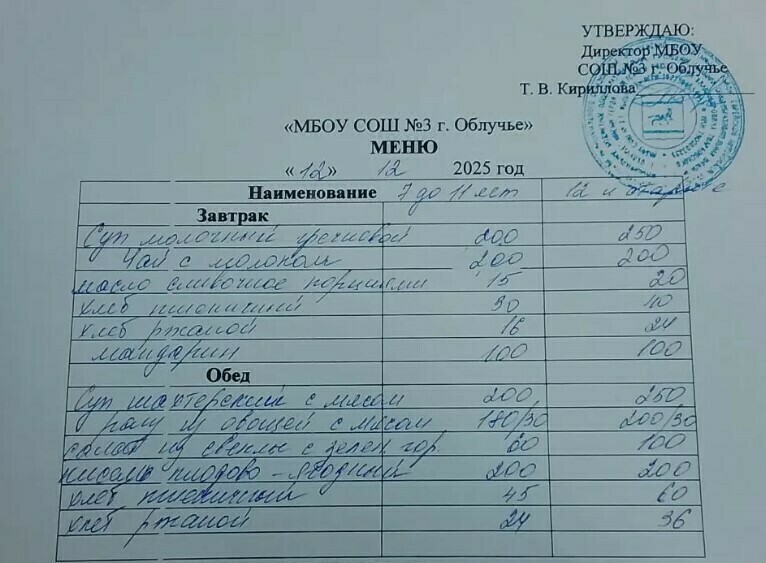 УТВЕРЖДАЮ:
Директор МБОУ
СОШ №3 г. Облучье
Т. В. Кириллова
«МБОУ СОШ №3 г. Облучье»
МЕНЮ
«12» 12 2025 год
Наименование 7 до 11 лет 12 и старше
Завтрак
Суп молочный гречневой 200 250
Чай с молоком 200 200
масло сливочное порциями 15 20
хлеб пшеничный 30 40
хлеб ржаной 16 24
мандарин 100 100
Обед
Суп шахтерский с мясом 200 250
рагу из овощей с мясом 180/30 200/30
салат из свеклы с зелен. гор. 60 100
кисель плодово-ягодный 200 200
хлеб пшеничный 45 60
хлеб ржаной 24 36